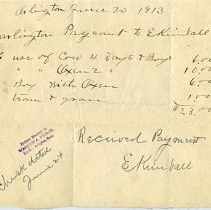 Arlington June 20 1913
Arlington Pageant to E Kimball
use of Cow 4 Days & Boys 6.00
" Oxen 2 " 10.00
Boy with Oxen 6.
& grain 1.0
$23.00
Received Payment
E Kimball
Check dated
June 24